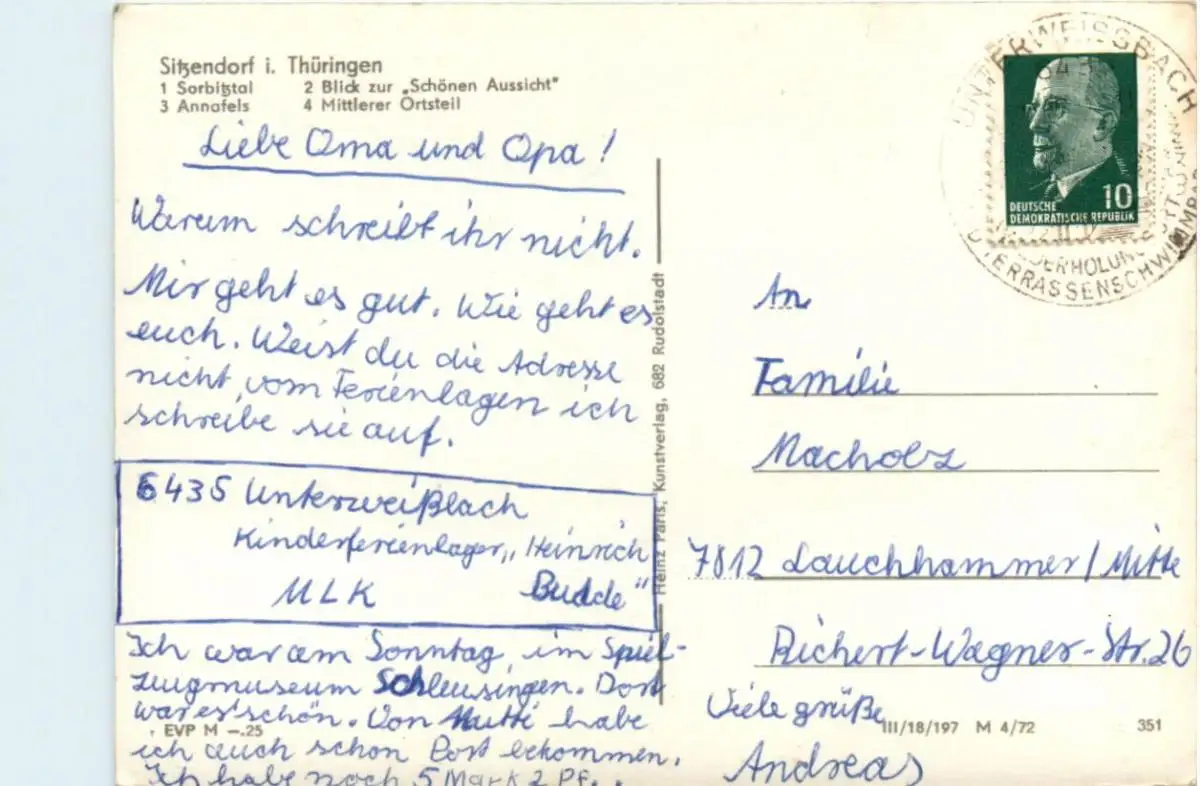 Sitzendorf i. Thüringen
1 Sorbitztal 2 Blick zur „Schönen Aussicht"
3 Annafels 4 Mittlerer Ortsteil
Liebe Oma und Opa!
Warum schreibt ihr nicht.
Mir geht es gut. Wie geht es
euch. Weist du die Adresse
nicht, vom Ferienlagen ich
schreibe sie auf.
6435 Unterweißlach
Kinderferienlager „Heinrich
MLK Budde"
Ich war am Sonntag, im Spiel-
zeugmuseum Schleusingen. Dort
war es schön. Von Mutti habe
EVP M -.25
ich auch schon Post bekommen.
Ich habe noch 5 Mark 2 Pf.
Heinz Paris, Kunstverlag, 682 Rudolstadt
UNTERWEISSBACH
TERRASSENSCHWIMMB
DEUTSCHE
DEMOKRATISCHE REPUBLIK
10
An
Familie
Macholz
7812 Lauchhammer/Mitte
Richert-Wagner-Str. 26
Viele grüße
III/18/197 M 4/72 351
Andreas